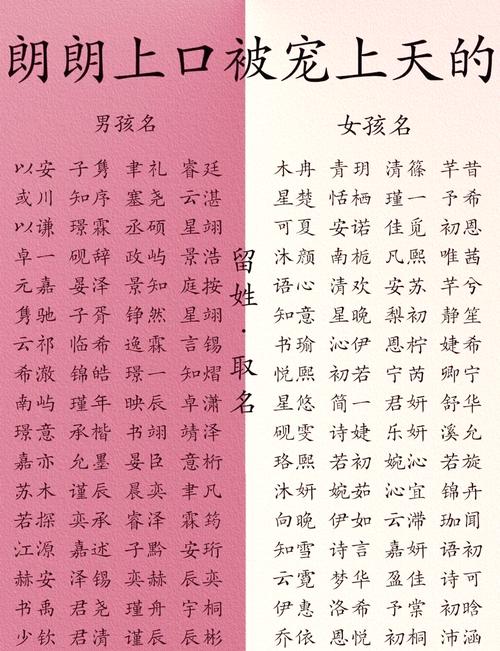 朗朗上口被宠上天的
男孩名
以安 子隽 聿礼 睿廷
或川 知序 塞尧 云湛
以谦 璟霖 丞硕 星翊
卓一 砚辞 政屿 景浩
元嘉 晏泽 景知 庭按
隽驰 子胥 铮然 星翊
云祁 临希 逸霖 言锡
希澈 锦皓 璟一 知熠
南屿 瑾年 映辰 卓潇
璟意 承楷 书翊 靖泽
嘉亦 允墨 晏臣 意桁
苏木 谨辰 晨奕 聿凡
若探 奕承 睿泽 霖筠
江源 嘉述 子黔 安珩
赫安 泽锡 奕赫 辰奕
书禹 君尧 瑾舟 宇桐
少钦 君清 谨辰 辰彬
留姓·取名
女孩名
木冉 青玥 清篠 芊昔
星楚 恬栖 瑾一 予希
可夏 安诺 佳觅 初恩
沐颜 南栀 凡熙 唯茜
语心 清欢 安苏 芊兮
知意 星晚 梨初 静笙
书瑜 沁伊 恩柠 婕希
悦熙 初若 宁芮 卿宁
星悠 简一 君妍 舒华
砚雯 诗婕 乐妍 溪允
珞熙 若初 婉沁 若旋
沐妍 婉茹 沁宜 锦卉
向晚 伊如 云滞 珈闻
知雪 诗言 嘉妍 语初
云霓 梦华 盈佳 诗可
伊惠 洛希 予棠 初晗
乔依 恩悦 初桐 沛涵